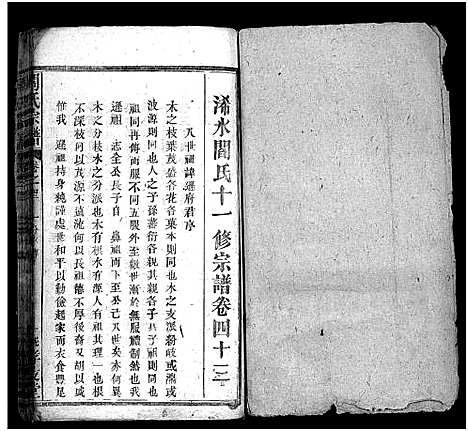 浠水閻氏十一修宗譜卷四十三
八世祖諱遲府君序
木之枝葉茂盛各花各葉本則同也水之支派紛岐或瀦或
波源則同也人之子孫蕃衍各親其親各子其子祖則同也
祖同再傳而服不同五服外至親世漸於無服禮制然也
遲祖 志全公長子自 鼻祖而下至公已八世矣亦何異
木之分枝水之分派也木有根水有源人有祖其理一也根
不深枝何以茂源不遠流何以長祖德不積後裔又胡以咸
惟我 遲祖持身純謹處世和平以勤儉起家而衣食豐足